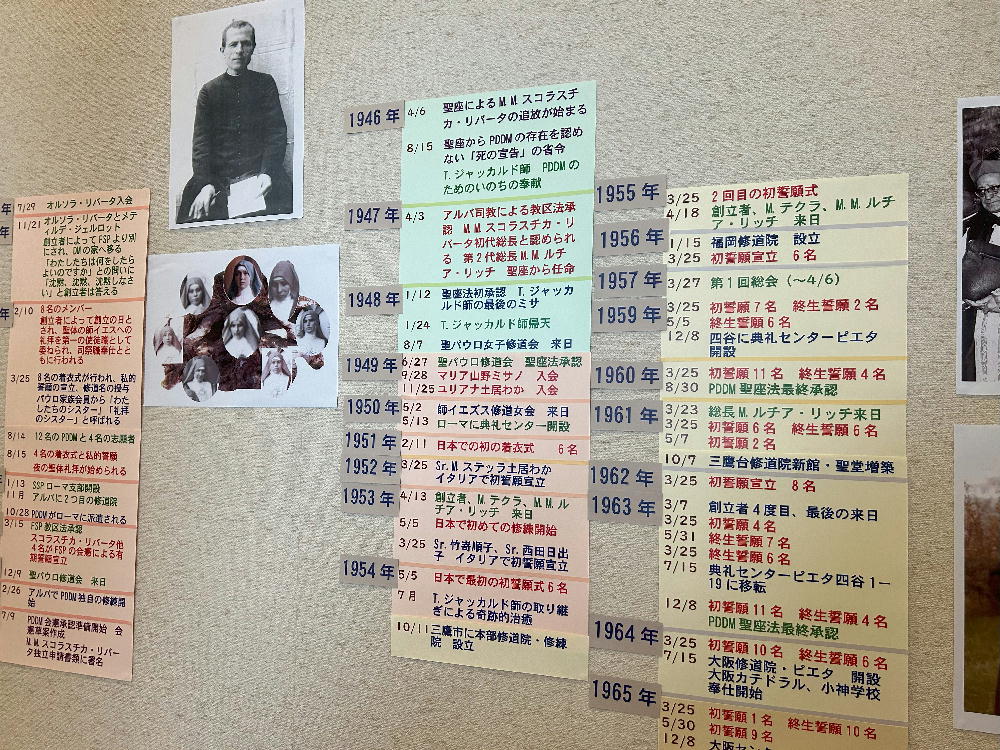 年
7/29 オルソラ・リバータ入会
年
11/21 オルソラ・リバータとメテ
ィルデ・ジェルロット
創立者によってFSPより別
にされ、DMの家へ移る
「わたしたちは何をしたら
よいのですか」との問いに
「沈黙、沈黙、沈黙しなさ
い」と創立者は答える
年
2/10 8名のメンバー
創立者によって創立の日と
され、聖体の師イエスへの
礼拝を第一の使徒職として
委ねられ、司祭職奉仕とと
もに行われる
3/25 8名の着衣式が行われ、私的
誓願の宣立、修道名の授与
パウロ家族会員から「わた
したちのシスター」「礼拝
のシスター」と呼ばれる
8/14 12名のPDDMと4名の志願者
8/15 4名の着衣式と私的誓願
夜の聖体礼拝が始められる
1/13 SSPローマ支部開設
11月 アルバに2つ目の修道院
10/28 PDDMがローマに派遣される
3/15 FSP教区法承認
スコラスチカ・リバータ他
4名がFSPの会憲による有
期誓願宣立
12/9 聖パウロ修道会 来日
2/26 アルバでPDDM独自の修練開
始
7/9 PDDM会憲承認準備開始 会
憲草案作成
M.M.スコラスチカ・リバー
タ独立申請書類に署名
1946年
4/6 聖座によるM.M.スコラスチ
カ・リバータの追放が始まる
8/15 聖座からPDDMの存在を認め
ない「死の宣告」の省令
T.ジャッカルド師 PDDMの
ためのいのちの奉献
1947年
4/3 アルバ司教による教区法承
認 M.M.スコラスチカ・リ
バータ初代総長と認められ
る 第2代総長M.M.ルチ
ア・リッチ 聖座から任命
1948年
1/12 聖座法初承認 T.ジャッカ
ルド師の最後のミサ
1/24 T.ジャッカルド師帰天
8/7 聖パウロ女子修道会 来日
1949年
6/27 聖パウロ修道会 聖座法承認
9/28 マリア山野ミサノ 入会
11/25 ユリアナ土居わか 入会
1950年
5/2 師イエズス修道女会 来日
5/13 ローマに典礼センター開設
1951年
2/11 日本での初の着衣式 6名
1952年
3/25 Sr.Mステッラ土居わか
イタリアで初誓願宣立
1953年
4/13 創立者、M.テクラ、M.M.ル
チア・リッチ 来日
5/5 日本で初めての修練開始
3/25 Sr.竹嵜順子、Sr.西田日出
子 イタリアで初誓願宣立
1954年
5/5 日本で最初の初誓願式6名
7月 T.ジャッカルド師の取り継
ぎによる奇跡的治癒
10/11 三鷹市に本部修道院・修練
院 設立
1955年
3/25 2回目の初誓願式
4/18 創立者、M.テクラ、M.M.ルチ
ア・リッチ 来日
1956年
1/15 福岡修道院 設立
3/25 初誓願宣立 6名
1957年
3/27 第1回総会(〜4/6)
1959年
3/25 初誓願7名 終生誓願2名
5/5 終生誓願6名
12/8 四谷に典礼センターピエタ
開設
1960年
3/25 初誓願11名 終生誓願4名
8/30 PDDM聖座法最終承認
1961年
3/23 総長M.ルチア・リッチ来日
3/25 初誓願6名 終生誓願6名
5/7 初誓願2名
10/7 三鷹台修道院新館・聖堂増築
1962年
3/25 初誓願宣立 8名
1963年
3/7 創立者4度目、最後の来日
3/25 初誓願4名
5/31 終生誓願7名
3/25 終生誓願6名
7/15 典礼センターピエタ四谷1−
19に移転
12/8 初誓願11名 終生誓願4名
PDDM聖座法最終承認
1964年
3/25 初誓願10名 終生誓願6名
7/15 大阪修道院・ピエタ 開設
大阪カテドラル、小神学校
奉仕開始
1965年
3/25 初誓願1名 終生誓願10名
5/30 初誓願9名
12/8 大阪セン